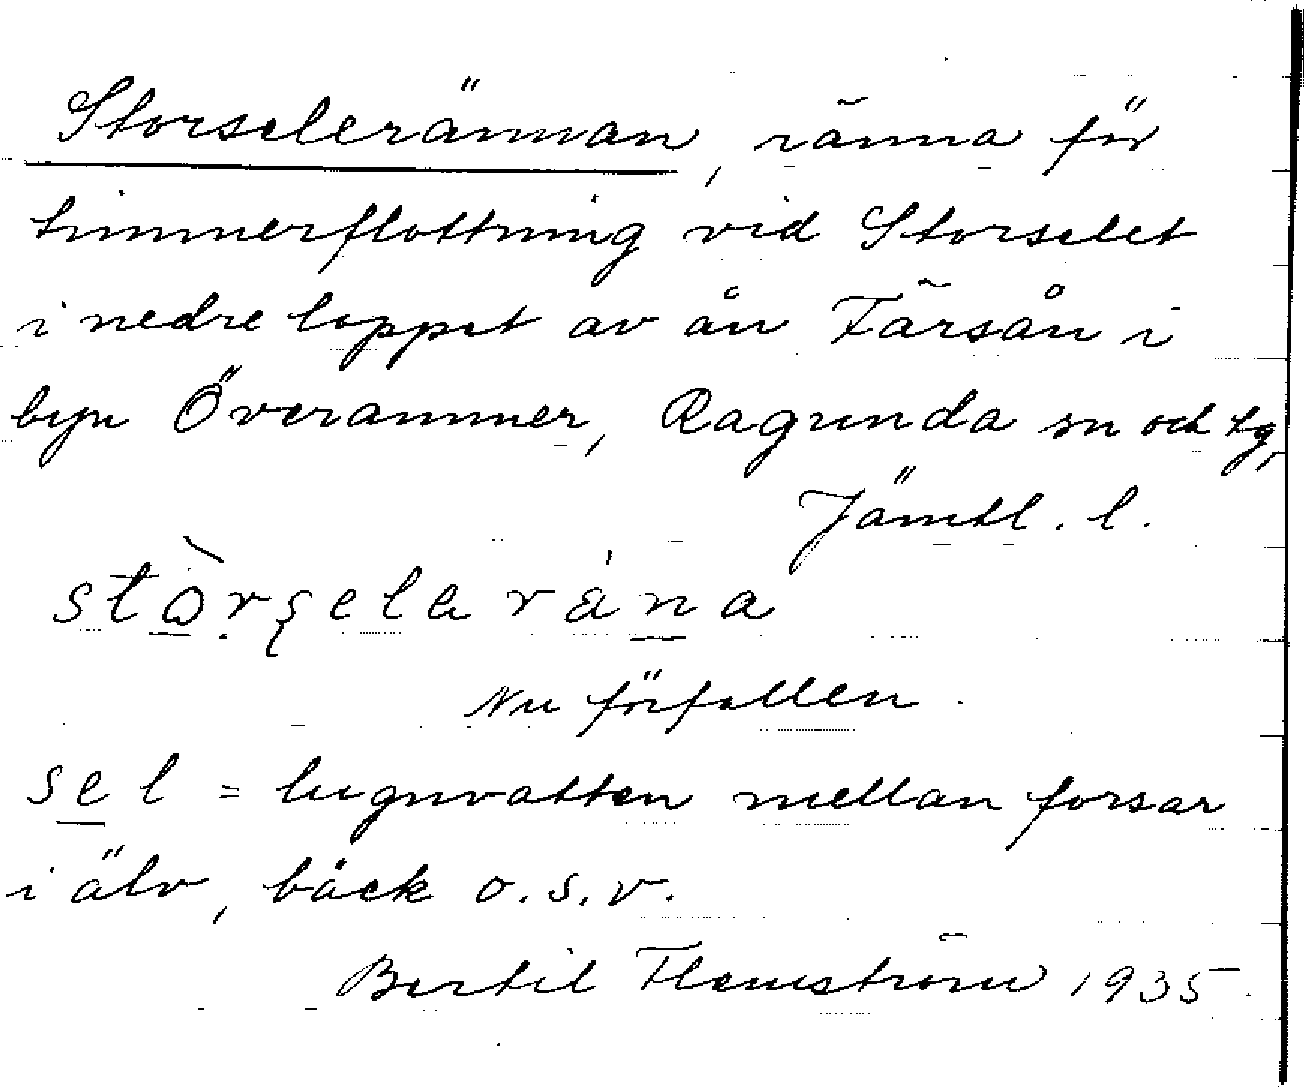 Storseleränman, ränna för
timmerflottning vid Storselet
i nedre loppet av ån Färsån i
byn Överammer, Ragunda sn och tg,
Jämtl. l.
Nu förfallen.
sel = lugnvatten mellan forsar
i älv, bäck o.s.v.
Bertil Flemström 1935.